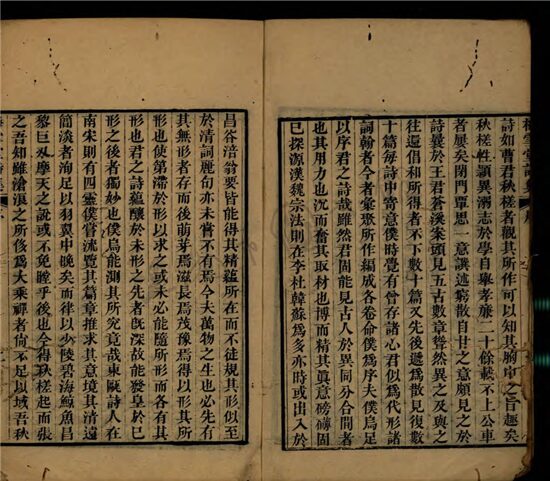 詩如曹君秋槎者觀其所作可以知其胸中之旨趣矣
秋槎性韻異溺志於學自皋孝嫌二十餘載不上公車
者屢矣閉門覃思一意譔述窮散自甘之意頗見之於
詩曩於王君蒼溪案頭見五古數章聳然異之及與之
往還倡和所得者不下數十篇又先後遞爲散見復數
十篇每詩中寄意僕時覺有曾存諸心君似爲代形諸
詞翰者今者彙聚所作編成各卷命僕爲序夫僕烏足
以序君之詩哉雖然君固能見古人於異同分合間者
也其用力也沉而奮其取材也博而精其眞意磅礴固
已探源漢魏宗法則在李杜韓蘇爲多亦時或出入於
昌谷涪翁要皆能得其精蘊所在而不徒規其形似至
於清詞麗句亦未嘗不有焉今夫萬物之生也必先有
其無形者存而後萌芽焉滋長焉茂豫焉得以形其所
形也使第滯於形以求之或未必能隨所形而各有其
形也君之詩蘊釀於未形之先者旣深故能發皇於已
形之後者獨妙也僕烏能測其所究竟哉東甌詩人在
南宋則有四靈僕嘗流覽其篇章推求其意境其清遠
簡淡者洵足以羽翼中晚矣而律以少陵碧海鯨魚昌
黎巨刃摩天之說或不免瞠乎後也今得秋槎起而張
之吾知雖滄溟之所侈爲大乘禪者尙不足以域吾秋